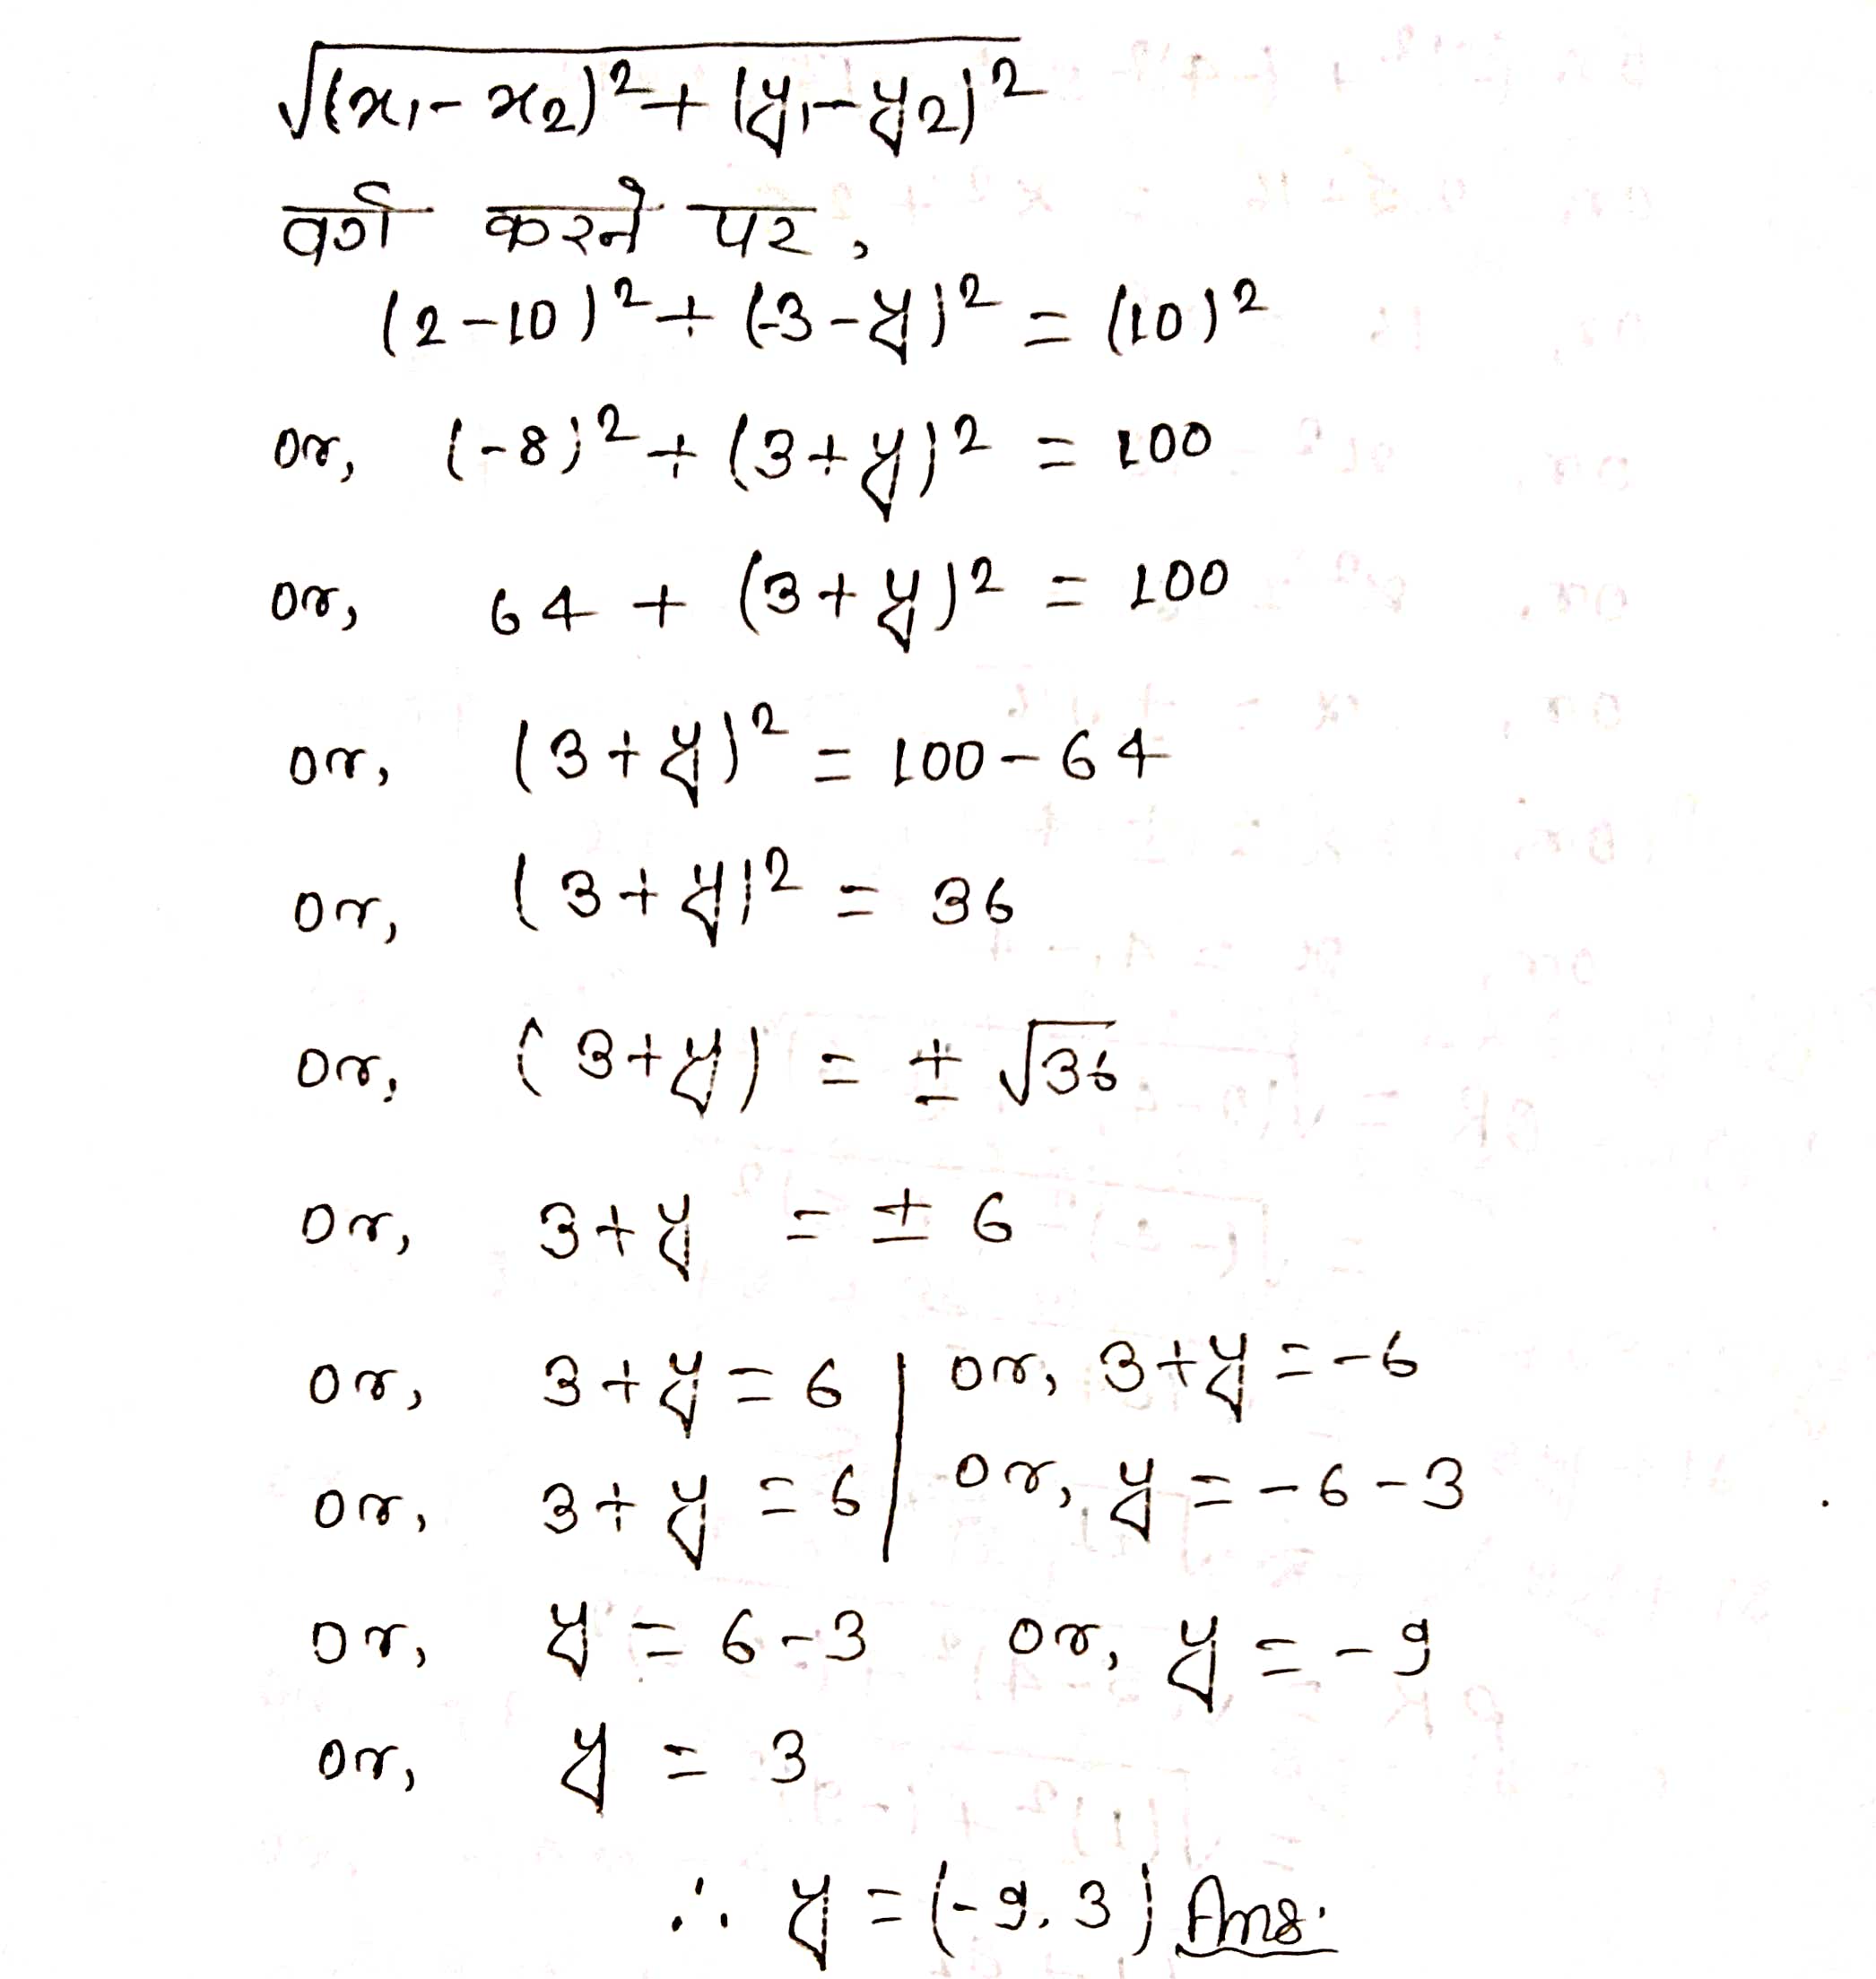 √(x₁-x₂)²+(y₁-y₂)²
वर्ग करने पर,
(2-10)²+(-3-y)² = (10)²
or, (-8)²+(3+y)² = 100
or, 64 + (3+y)² = 100
or, (3+y)² = 100-64
or, (3+y)² = 36
or, (3+y) = ± √36
or, 3+y = ± 6
or, 3+y = 6 | or, 3+y = -6
or, 3+y = 6 | or, y = -6-3
or, y = 6-3 or, y = -9
or, y = 3
∴ y = (-9, 3) Ans.